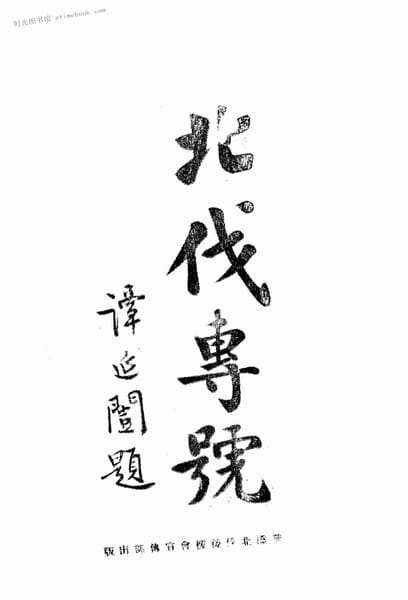 时光图书馆 atimebook.com
北伐專號
譚延闓題
華僑北伐後援會宣傳部出版